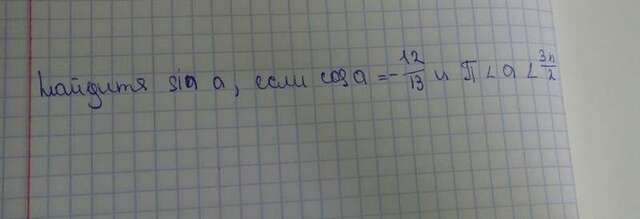 Найдитя sin a, если cos a = -12/13 и π < a < 3π/2